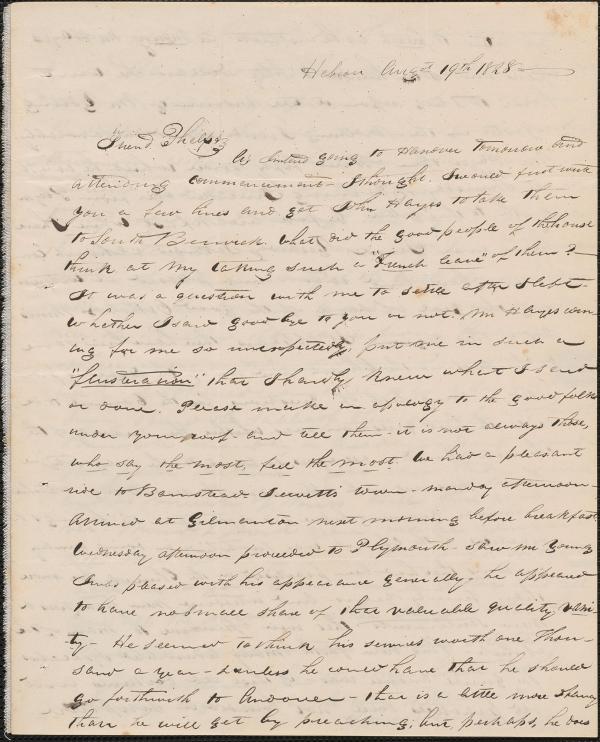 Hebron Augst 19th 1828
Friend Phelps
As I intend going to Hanover tomorrow and
attending commencement I thought I would first write
you a few lines and get John Hayes to take them
to South Berwick. What did the good people of the house
think at my taking such a "french leave" of them?
It was a question with me to settle after I left
whether I said good bye to you or not. Mr Hayes com-
ing for me so unexpectedly put me in such a
"flusteration" that I hardly knew what I said
or done. Please make an apology to the good folks
under your roof and tell them it is not always those,
who say the most, feel the most. We had a pleasant
ride to Barnstead Jewetts town monday afternoon
Arrived at Gilmanton next morning before breakfast
Wednesday afternoon proceeded to Plymouth saw Mr Young
I was pleased with his appearance generally, he appeared
to have no small share of that valuable quality, vani-
ty. He seemed to think his services worth one thou-
sand a year unless he could have that he should
go forthwith to Andover that is a little more
than he will get by preaching; but, perhaps, he does